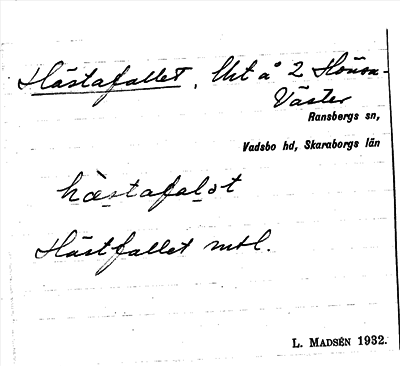 Hästafallet, Urt å 2 Hönsa-
Väster
Ransbergs sn,
Vadsbo hd, Skaraborgs län
hæ̀stafalət
Hästfallet mtl.
L. MADSÉN 1932.